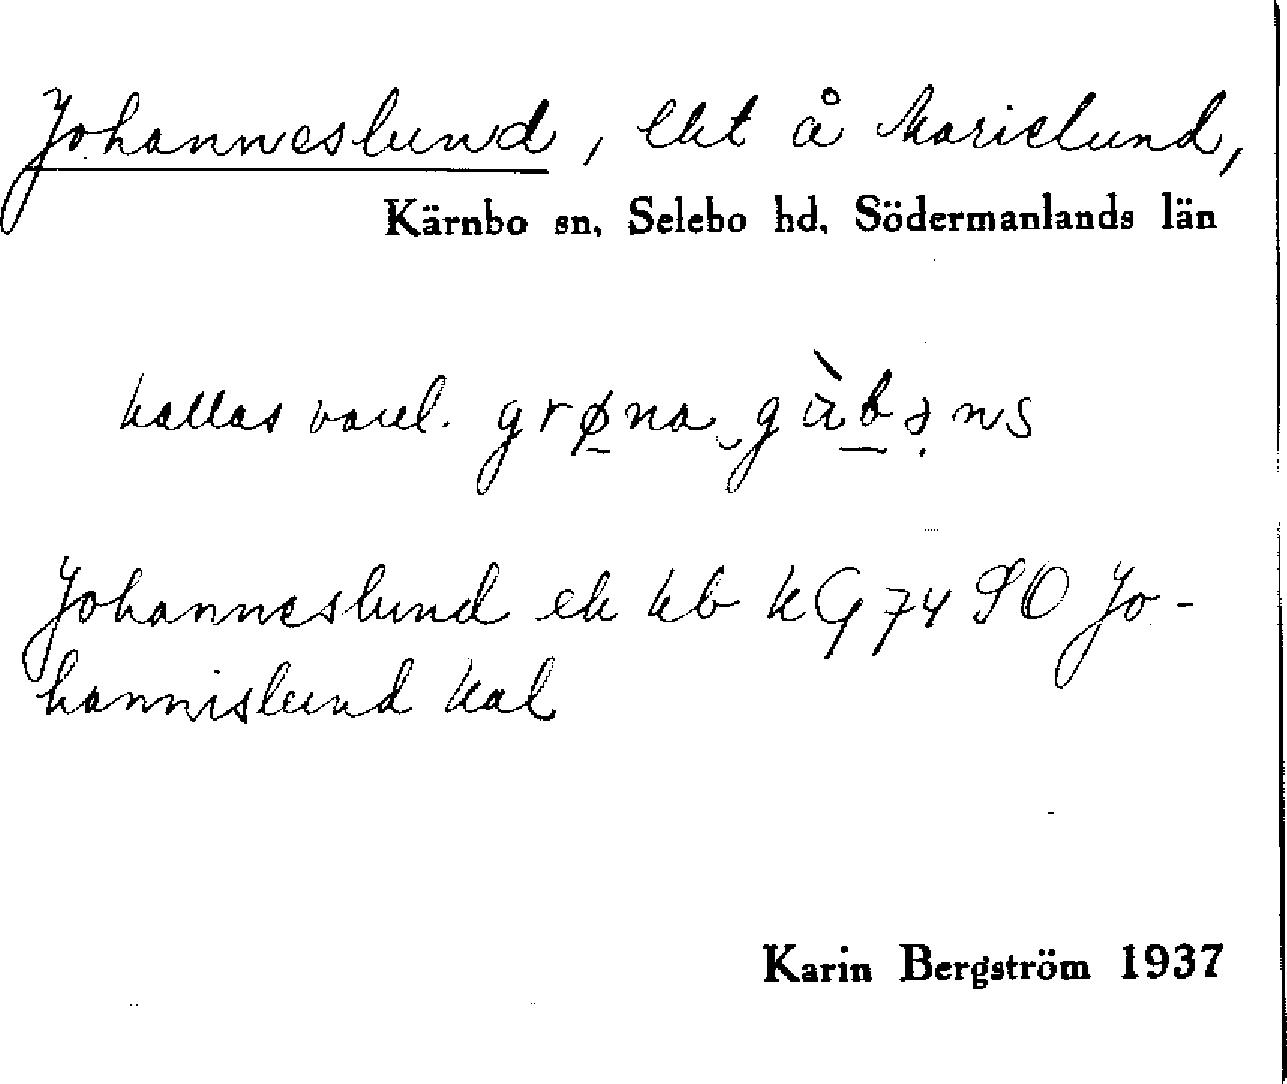 Johanneslund, lht å Marielund,
Kärnbo sn, Selebo hd, Södermanlands län
kallas vanl. grøna gùbəns
Johanneslund ek kb kG 74 SO Jo-
hannislund kal
Karin Bergström 1937